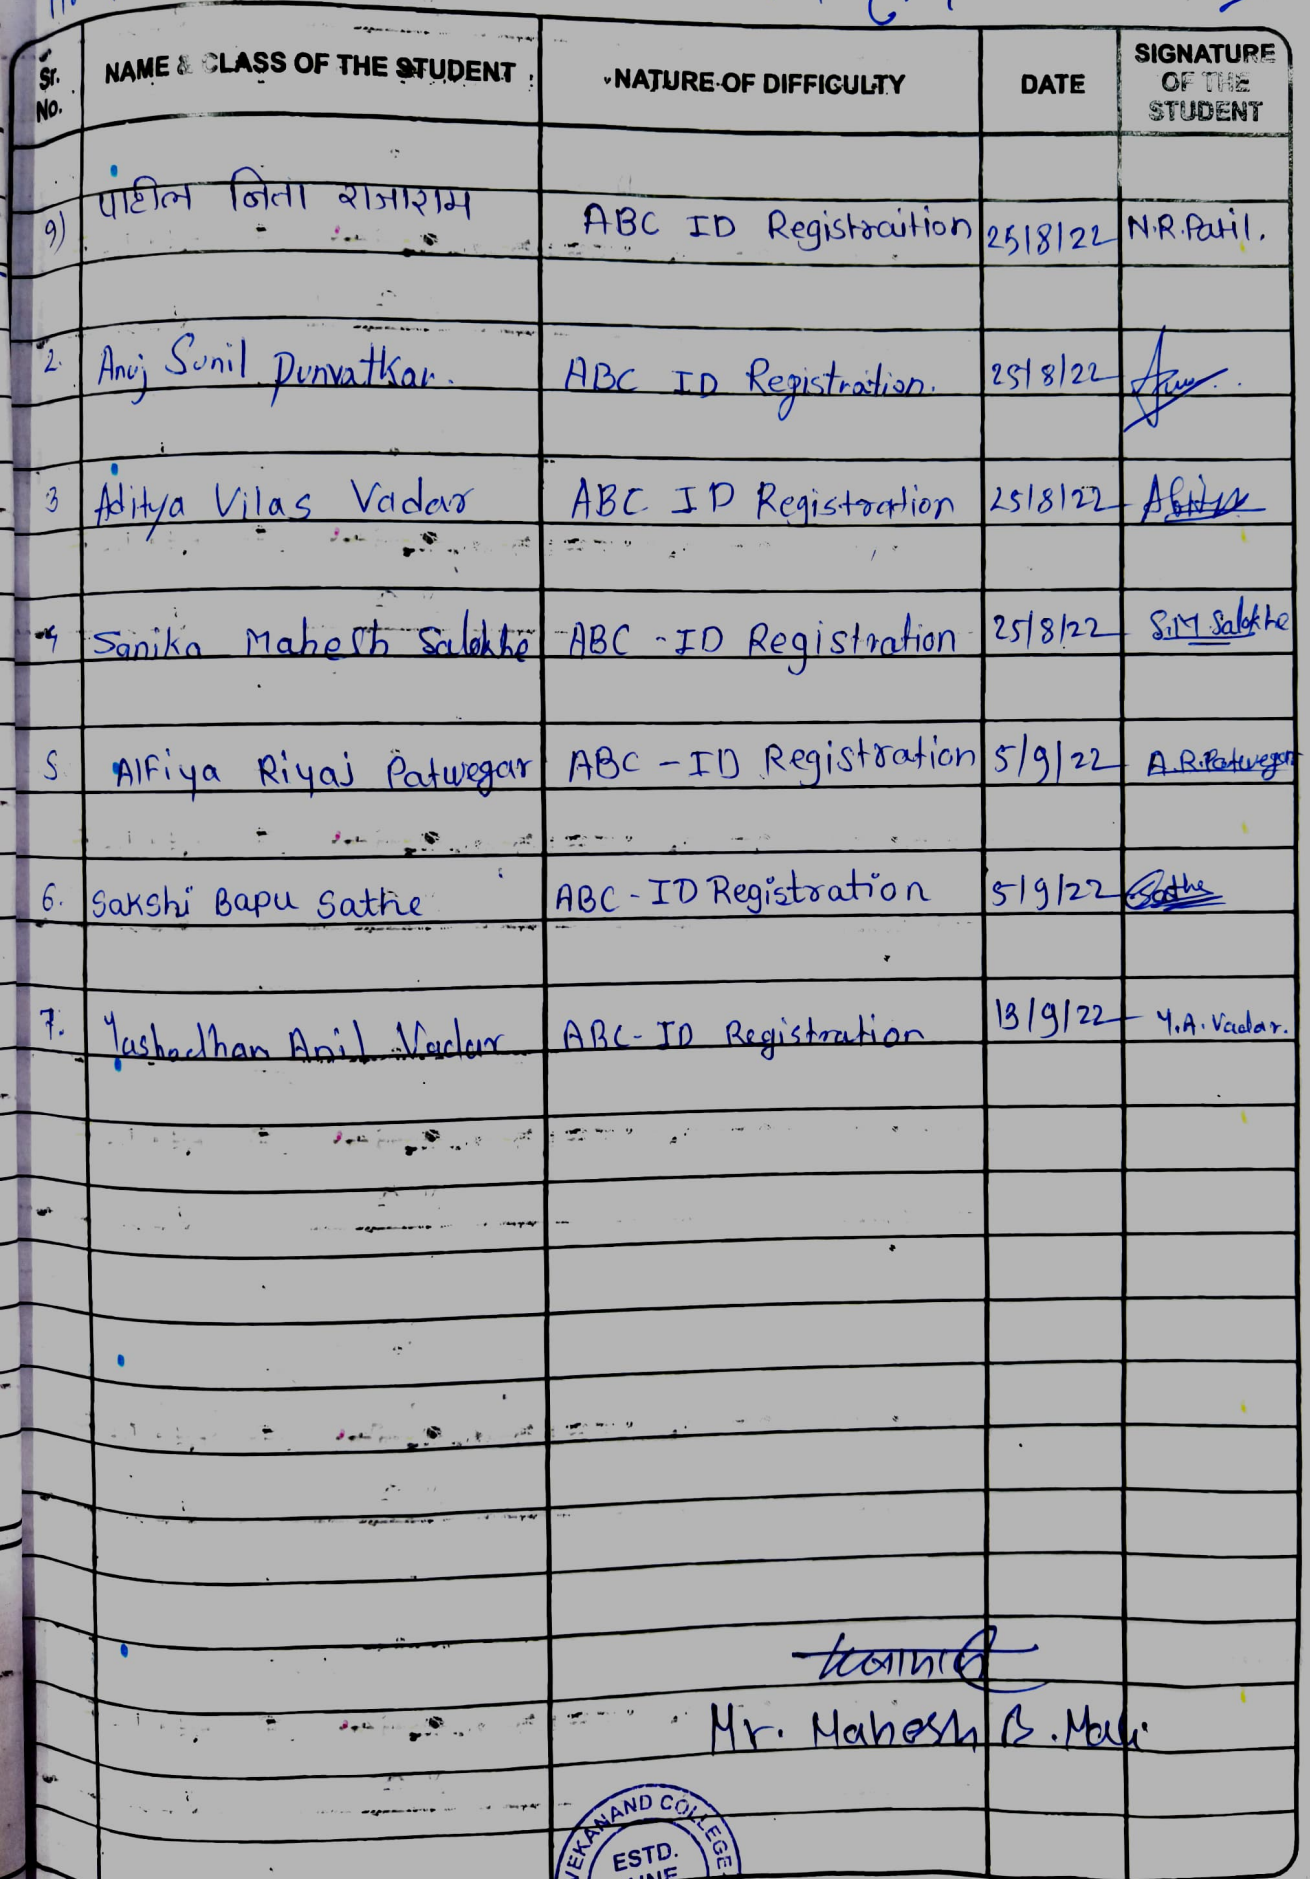 Sr. No. NAME & CLASS OF THE STUDENT NATURE OF DIFFICULTY DATE SIGNATURE OF THE STUDENT
१) पाटील निता राजाराम ABC ID Registraition 25/8/22 N.R.Patil.
2. Anuj Sunil Punvatkar. ABC ID Registration. 25/8/22
3 Aditya Vilas Vadar ABC ID Registration 25/8/22
4 Sanika Mahesh Salokhe ABC - ID Registration 25/8/22 S.M Salokhe
5 Alfiya Riyaj Patwegar ABC - ID Registration 5/9/22 A.R.Patwegar
6. Sakshi Bapu Sathe ABC - ID Registration 5/9/22 Sathe
7. Yashodhan Anil Vadar ABC - ID Registration 13/9/22 Y.A. Vadar.
Mr. Mahesh B. Mali
EKANAND COLLEGE
ESTD.